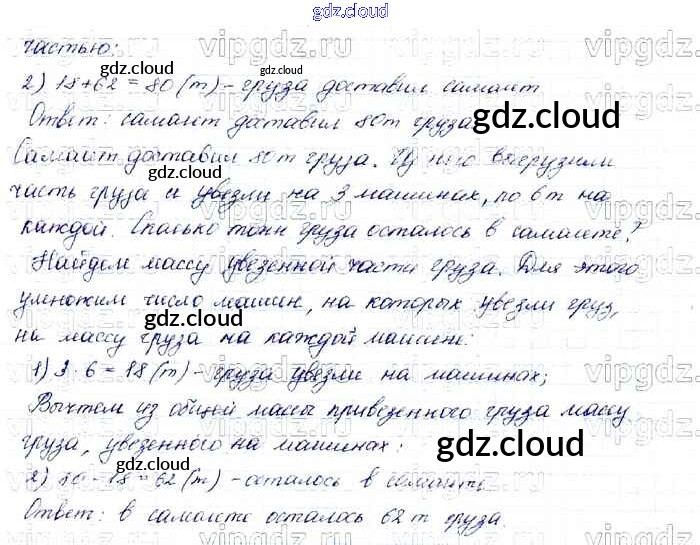 gdz.cloud
частью:
2) 18+62=80 (т) - груза доставил самолёт.
Ответ: самолёт доставил 80т груза.
Самолёт доставил 80т груза. Из него выгрузили
часть груза и увезли на 3 машинах, по 6т на
каждой. Сколько тонн груза осталось в самолёте?
Найдем массу увезенной части груза. Для этого
умножим число машин, на которых увезли груз,
на массу груза на каждой машине:
1) 3·6=18 (т) - груза увезли на машинах;
Вычтем из общей массы привезенного груза массу
груза, увезенного на машинах:
2) 80-18=62 (т) - осталось в самолёте.
Ответ: в самолете осталось 62т груза.